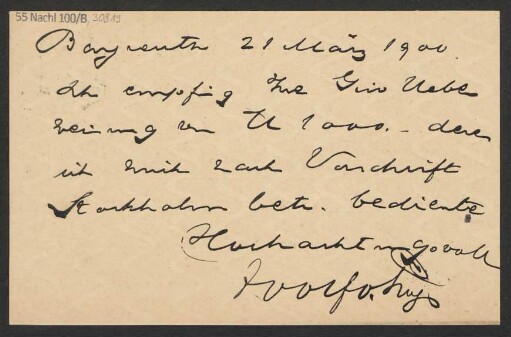 55 Nachl 100/B, 30819
Bayreuth 21 März 1900.
Ich empfing Ihre Giro Ueber
weisung von M 1000.- deren
ich mich nach Vorschrift
Stockholm betr. bediente
Hochachtungsvoll